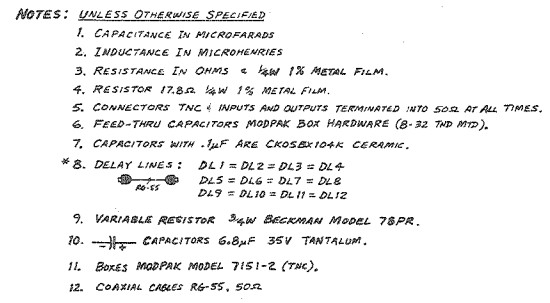 NOTES: UNLESS OTHERWISE SPECIFIED
1. CAPACITANCE IN MICROFARADS
2. INDUCTANCE IN MICROHENRIES
3. RESISTANCE IN OHMS & 1/4W 1% METAL FILM.
4. RESISTOR 17.8Ω 1/4W 1% METAL FILM.
5. CONNECTORS TNC & INPUTS AND OUTPUTS TERMINATED INTO 50Ω AT ALL TIMES.
6. FEED-THRU CAPACITORS MODPAK BOX HARDWARE (8-32 TND MTD).
7. CAPACITORS WITH .1µF ARE CK05BX104K CERAMIC.
*8. DELAY LINES: DL1 = DL2 = DL3 = DL4
RG-55 DL5 = DL6 = DL7 = DL8
DL9 = DL10 = DL11 = DL12
9. VARIABLE RESISTOR 3/4W BECKMAN MODEL 78PR.
10. CAPACITORS 6.8µF 35V TANTALUM.
11. BOXES MODPAK MODEL 7151-2 (TNC).
12. COAXIAL CABLES RG-55, 50Ω